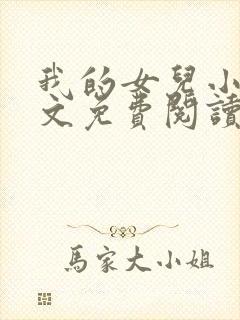 我的女兒小
文免費閱讀
馬家大小姐